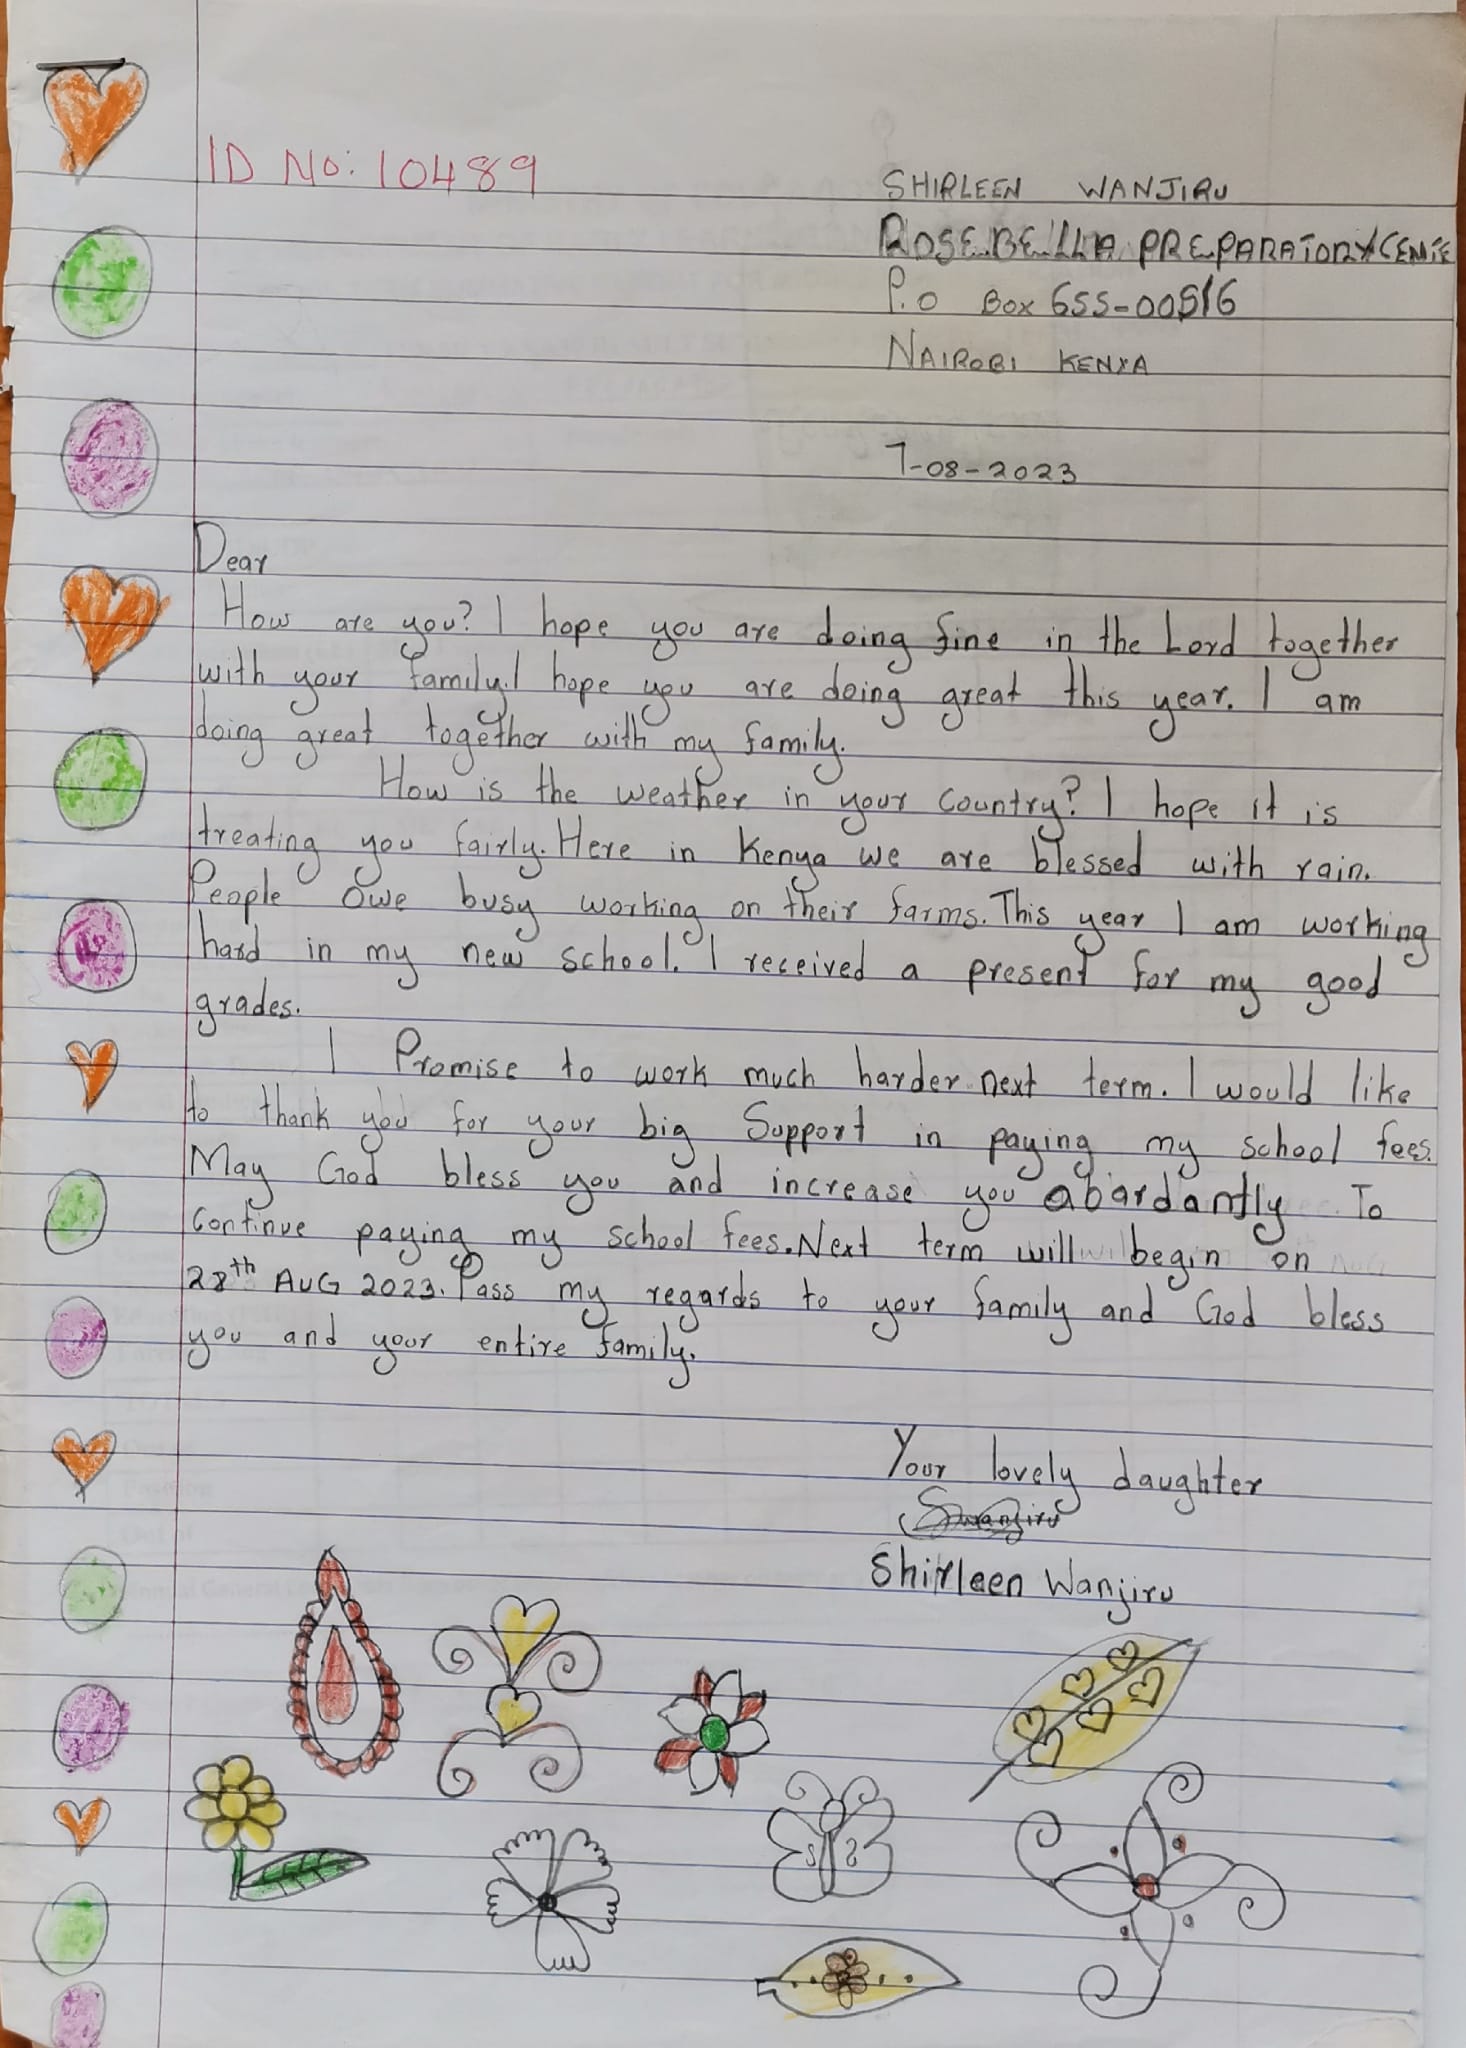 ID No: 10489
SHIRLEEN WANJIRU
ROSEBELLA PREPARATORY CENTE
P.O Box 655-00516
NAIROBI KENYA
7-08-2023
Dear
How are you? I hope you are doing fine in the Lord together
with your family. I hope you are doing great this year. I am
doing great together with my family.
How is the weather in your country? I hope it is
treating you fairly. Here in Kenya we are blessed with rain.
People owe busy working on their farms. This year I am working
hard in my new school. I received a present for my good
grades.
I Promise to work much harder next term. I would like
to thank you for your big Support in paying my school fees.
May God bless you and increase you abardantly To
continue paying my school fees. Next term will begin on
28th AUG 2023. Pass my regards to your family and God bless
you and your entire family.
Your lovely daughter
Swanjiru
Shirleen Wanjiru